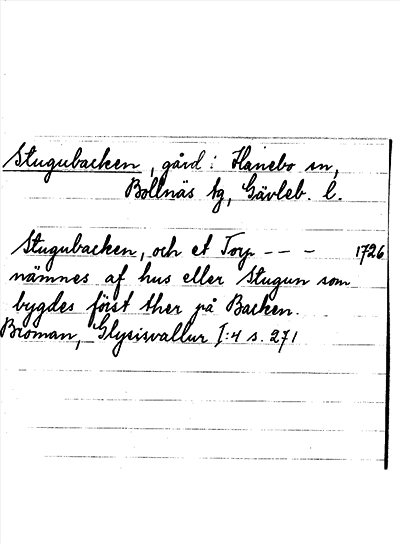 Stugubacken, gård i Hanebo sn,
Bollnäs tg, Gävleb. l.
Stugubacken, och et Torp - - - 1726
nämnes af hus eller Stugun som
bygdes först ther på Backen.
Broman, Glysisvallur I:4 s. 271